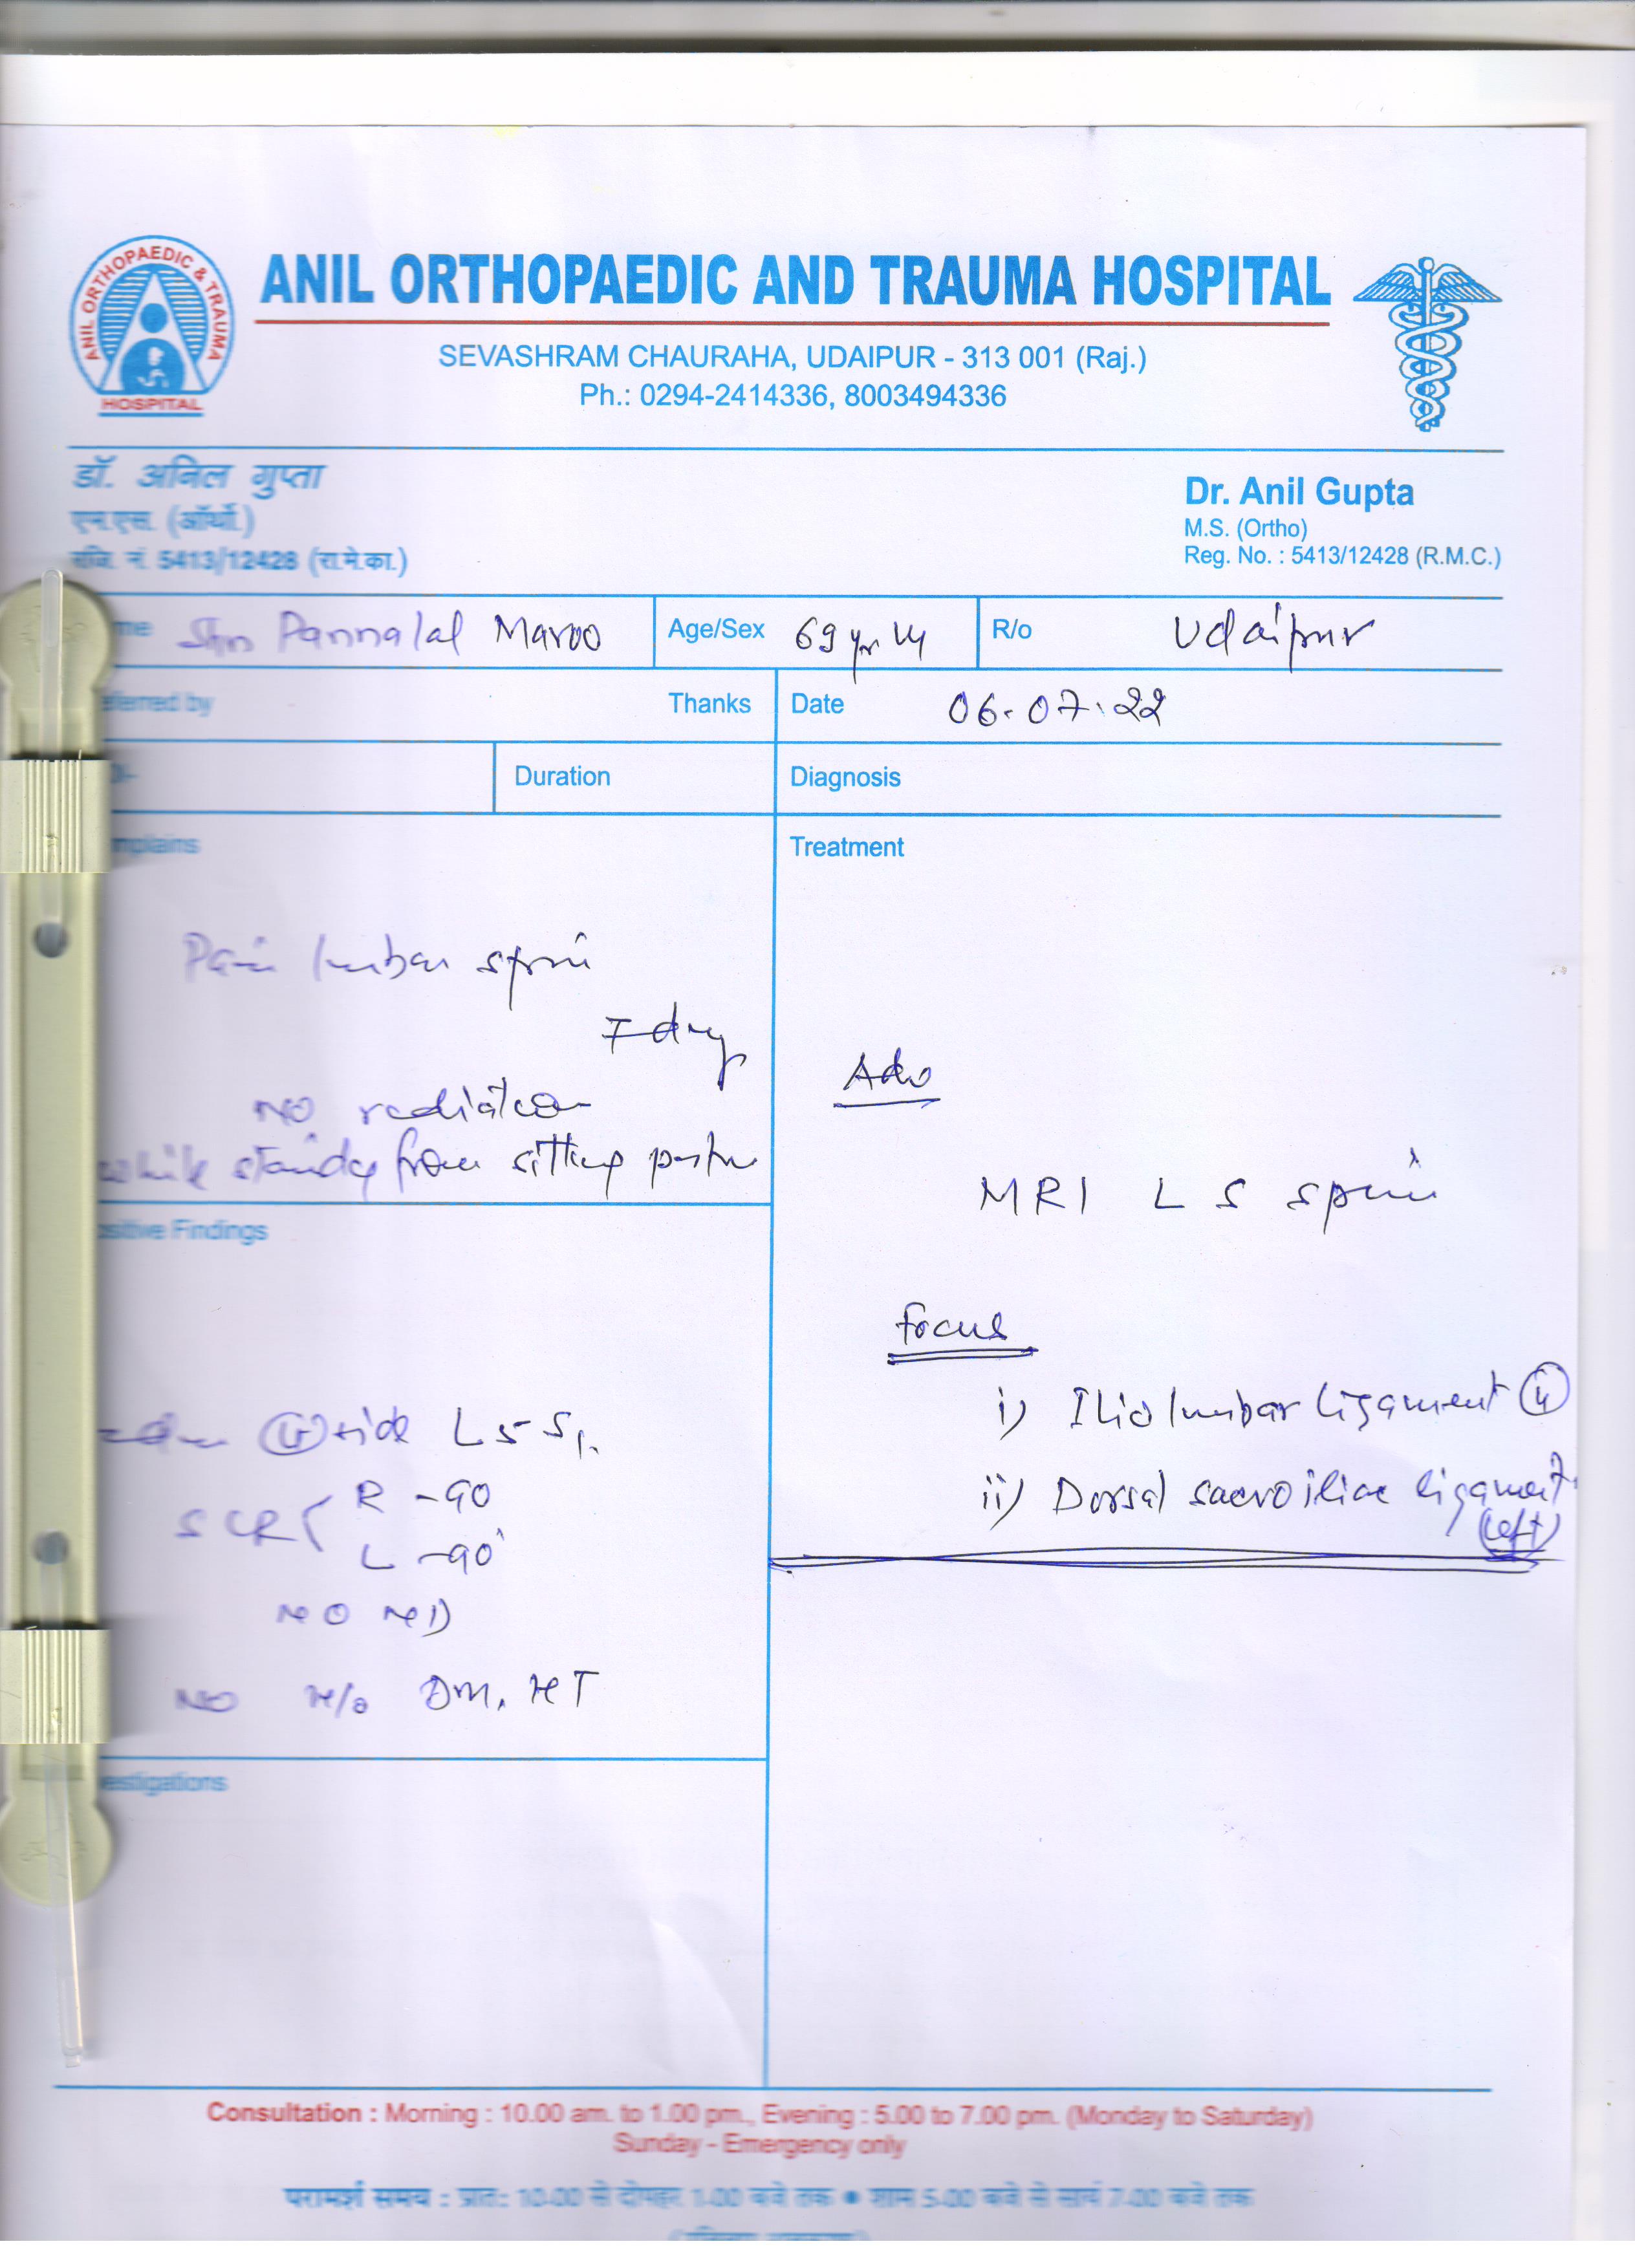 ANIL ORTHOPAEDIC & TRAUMA
HOSPITAL
ANIL ORTHOPAEDIC AND TRAUMA HOSPITAL
SEVASHRAM CHAURAHA, UDAIPUR - 313 001 (Raj.)
Ph.: 0294-2414336, 8003494336
डॉ. अनिल गुप्ता
एम.एस. (ऑर्थो.)
रजि. नं. 5413/12428 (रा.मे.का.)
Dr. Anil Gupta
M.S. (Ortho)
Reg. No. : 5413/12428 (R.M.C.)
me Shri Pannalal Maroo Age/Sex 69 yr M R/o Udaipur
eferred by Thanks Date 06.07.22
Duration Diagnosis
mplains Treatment
Pain lumbar spine
7 day
NO radiation
while standing from sitting posture
Adv
MRI L S spine
Focus
i) Iliolumbar ligament
ii) Dorsal sacroiliac ligament
(Left)
sitive Findings
side L5-S1.
R -90
L -90°
NO ND
NO H/o DM, HT
estigations
Consultation : Morning : 10.00 am. to 1.00 pm., Evening : 5.00 to 7.00 pm. (Monday to Saturday)
Sunday - Emergency only
परामर्श समय : प्रात: 10-00 से दोपहर 1-00 बजे तक • शाम 5-00 बजे से सायं 7-00 बजे तक